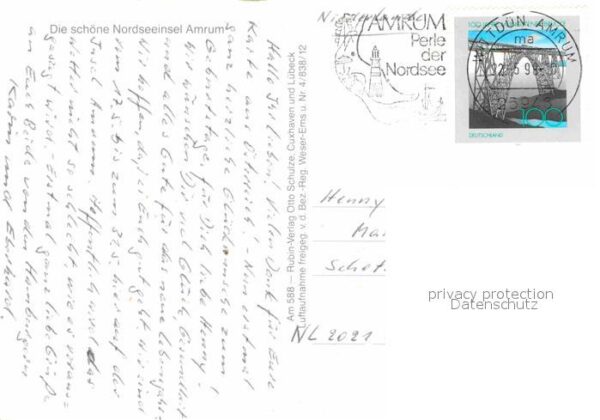 Die schöne Nordseeinsel Amrum
Hallo Ihr Lieben! Vielen Dank für Eure
Karte aus Österreich! - Nun erstmal
ganz herzliche Glückwünsche zum
Geburtstage, für Dich liebe Henny!
Wir wünschen Dir viel Glück, Gesundheit
und alles Gute für das neue Lebensjahr
Wir hoffen, daß es Euch gut geht. Wir sind
vom 17.5. bis zum 8.25. hier auf der
Insel Amrum. Hoffentlich wird das
Wetter nicht so schlecht, wie es
gesagt wird. - Erstmal ganz liebe Grüße
an Euch Beide von den Hamburgern
Katrin und Eberhard.
Am 588 — Rubin-Verlag Otto Schulze, Cuxhaven und Lübeck
Luftaufnahme freigeg. v. d. Bez.-Reg. Weser-Ems u. Nr. 4/838/12
AMRUM
Perle
der
Nordsee
WITTDÜN, AMRUM
ma
DEUTSCHLAND
100
Henny
NL 2021
privacy protection
Datenschutz